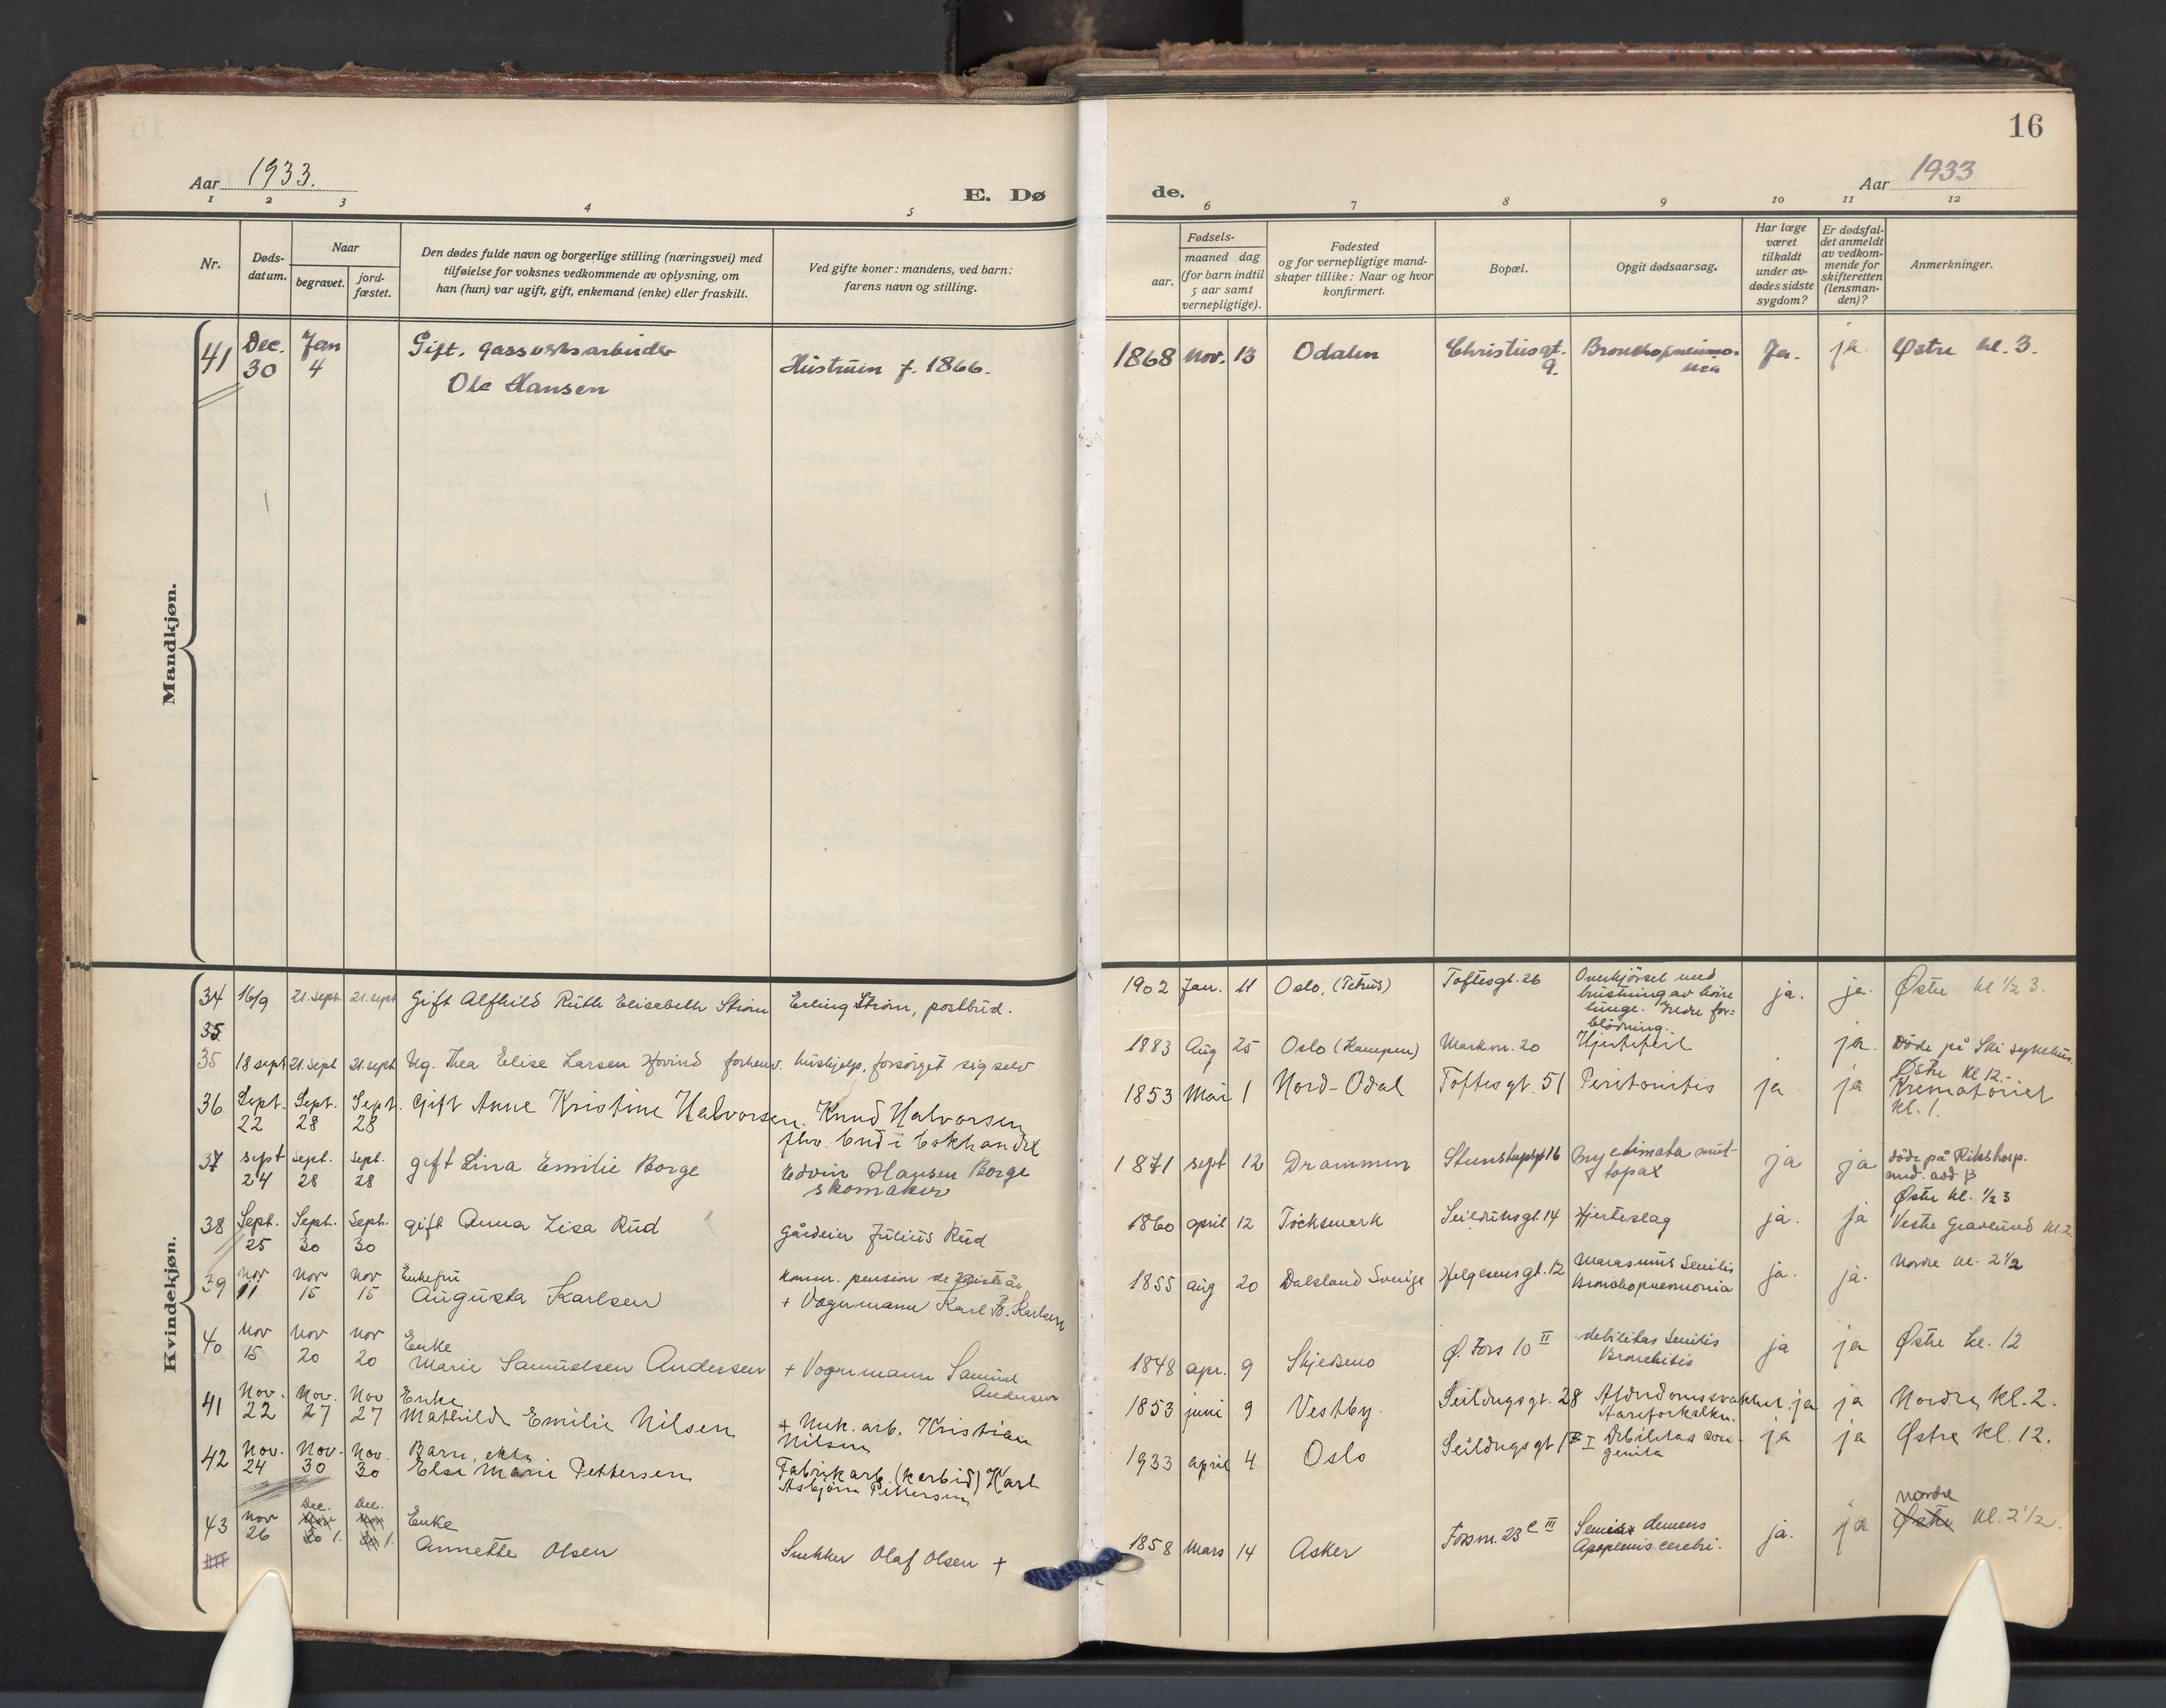 16
Aar 1933.
E. Dø
de.
Aar 1933
1 2 3 4 5 6 7 8 9 10 11 12
Nr.
Døds-
datum.
Naar
begravet.
jord-
fæstet.
Den dødes fulde navn og borgerlige stilling (næringsvei) med
tilføielse for voksnes vedkommende av oplysning, om
han (hun) var ugift, gift, enkemand (enke) eller fraskilt.
Ved gifte koner: mandens, ved barn:
farens navn og stilling.
Fødsels-
aar.
maaned dag
(for barn indtil
5 aar samt
vernepligtige).
Fødested
og for vernepligtige mand-
skaper tillike: Naar og hvor
konfirmert.
Bopæl.
Opgit dødsaarsag.
Har læge
været
tilkaldt
under av-
dødes sidste
sygdom?
Er dødsfal-
det anmeldt
av vedkom-
mende for
skifteretten
(lensman-
den)?
Anmerkninger.
Mandkjøn.
41 Dec. 30 Jan 4 Gift. gassverksarbeider
Ole Hansen
Hustruen f. 1866.
1868 Nov. 13 Odalen Christiesgt. 9. Bronchopneumo-
nia
Ja. ja Østre kl. 3.
Kvindekjøn.
34 16/9 21. sept 21. sept Gift Alfhild Ruth Elisabeth Strøm Erling Strøm, postbud.
1902 Jan. 11 Oslo, (Petrus) Toftesgt. 26 Overkjørsel med
bristning av høire
lunge. Indre for-
blødning.
ja. ja. Østre kl ½ 3.
35
35 18 sept 21. sept 21. sept Ug. Thea Elise Larsen Hovind forhenv. hushjelp, forsørget sig selv
1883 Aug 25 Oslo (Kampen) Markvn. 20 Hjertefeil ja. Døde på Ski sykehus.
Østre kl 12.
36 Sept. 22 Sept. 28 Sept. 28 Gift Anne Kristine Halvorsen. Knud Halvorsen
fhv. bud i bokhandel
1853 Mai 1 Nord-Odal Toftesgt. 51 Peritonitis ja ja Krematoriet
kl. 1.
37 sept 24 sept. 28 sept. 28 gift Lina Emilie Borge Edvin Hansen Borge
skomaker
1871 sept 12 Drammen ja ja døde på Rikshosp.
med. avd B
Østre kl. ½ 3
38 Sept. 25 Sept. 30 Sept. 30 gift Anna Lisa Rud Gårdeier Julius Rud
1860 april 12 Töcksmark Seilduksgt. 14 Hjerteslag ja. ja Vestre Gravlund kl. 2
39 Nov 11 Nov 15 Nov 15 Enkefru
Augusta Karlsen
komm. pension de siste år
+ Vognmann Karl B. Karlsen
1855 aug 20 Dalsland Sverige Helgesensgt. 12 Marasmus Senilis
Bronchopneumonia
ja. ja. Nordre kl. 2½
40 Nov 15 Nov 20 Nov 20 Enke
Marie Samuelsen Andersen + Vognmann Samuel
Andersen
1848 apr. 9 Skjedsmo Ø. Foss 10 II debilitas Senilis
Bronchitis
ja ja Østre kl. 12
41 Nov. 22 Nov. 27 Nov 27 Enke
Mathilde Emilie Nilsen + Mek. arb. Kristian
Nilsen
1853 juni 9 Vestby. Seildugsgt. 28 Alderdomssvakhet.
Aareforkalkn.
ja ja Nordre kl. 2.
42 Nov. 24 Nov. 30 Nov. 30 Barn, ekte
Else Marie Pettersen Fabrikarb. (karbid) Karl
Asbjørn Pettersen
1933 april 4 Oslo Debilitas con-
genita
ja ja Østre kl. 12.
43 Nov 26 Dec. 1. Dec. 1. Enke
Annette Olsen Snekker Olaf Olsen +
1858 Mars 14 Asker Fossvn. 23 c III demens
cerebri.
ja. ja Nordre
Østre kl. 2½.